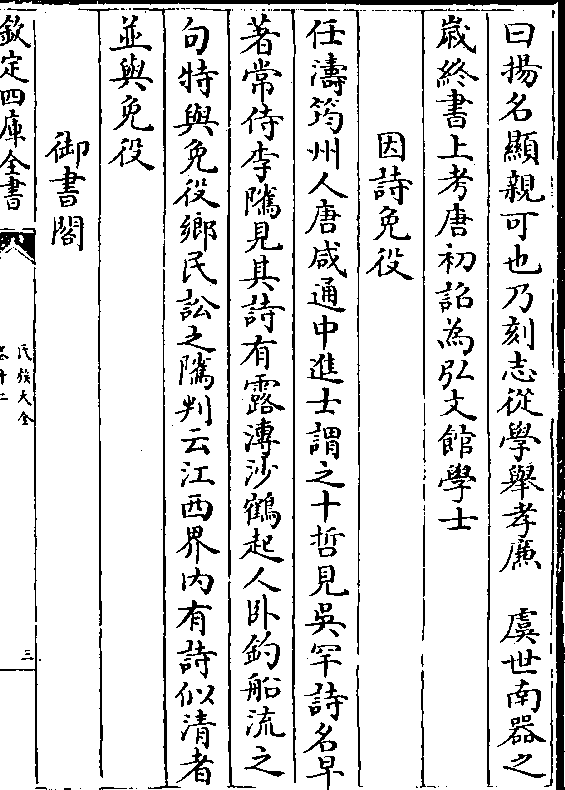 曰揚名顯親可也乃刻志從學舉孝廉　虞世南器之
歲終書上考唐初詔為弘文館學士
因詩免役
任濤筠州人唐咸通中進士謂之十哲見吳罕詩名早
著常侍李隲見其詩有露漙沙鶴起人卧釣船流之
句特與免役鄉民訟之隲判云江西界内有詩似清者
並與免役
御書閣
欽定四庫全書
氏族大全
卷十二
三